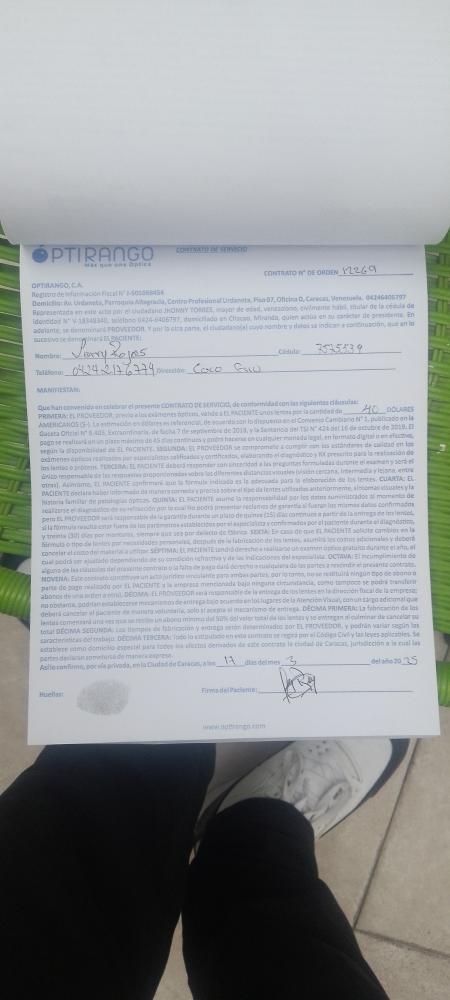 ÓPTIRANGO
Más que una Óptica
CONTRATO DE SERVICIO
CONTRATO N° DE ORDEN 12269
OPTIRANGO, C.A.
Registro de Información Fiscal N°
Domicilio: Av. Urdaneta, Parroquia Altagracia, Centro Profesional Urdaneta, Piso 07, Oficina D, Caracas, Venezuela. 04246406797
Representada en este acto por el ciudadano JHONNY TORRES, mayor de edad, venezolano, civilmente hábil, titular de la cédula de
identidad N° V-18348340, teléfono 0424-6406797, domiciliado en Chacao, Miranda, quien actúa en su carácter de presidente. En
adelante, se denominará PROVEEDOR. Y por la otra parte, el ciudadano(a) cuyo nombre y datos se indican a continuación, que en lo
sucesivo se denominará EL PACIENTE:
Nombre: Cédula: 3575539
Teléfono: 04242176774 Dirección:
MANIFIESTAN:
Que han convenido en celebrar el presente CONTRATO DE SERVICIO, de conformidad con las siguientes cláusulas:
PRIMERA: EL PROVEEDOR, previo a los exámenes ópticos, vende a EL PACIENTE unos lentes por la cantidad de 40 DÓLARES
AMERICANOS ($-). La estimación en dólares es referencial, de acuerdo con lo dispuesto en el Convenio Cambiario N° 1, publicado en la
Gaceta Oficial N° 6.405, Extraordinaria, de fecha 7 de septiembre de 2018, y la Sentencia del TSJ N° 424 del 16 de octubre de 2019. El
pago se realizará en un plazo máximo de 45 días continuos y podrá hacerse en cualquier moneda legal, en formato digital o en efectivo,
según la disponibilidad de EL PACIENTE. SEGUNDA: EL PROVEEDOR se compromete a cumplir con los estándares de calidad en los
exámenes ópticos realizados por especialistas calificados y certificados, elaborando el diagnóstico y RX prescrito para la realización de
los lentes o prótesis. TERCERA: EL PACIENTE deberá responder con sinceridad a las preguntas formuladas durante el examen y será el
único responsable de las respuestas proporcionadas sobre las diferentes distancias visuales (visión cercana, intermedia y lejana, entre
otras). Asimismo, EL PACIENTE confirmará que la fórmula indicada es la adecuada para la elaboración de los lentes. CUARTA: EL
PACIENTE declara haber informado de manera correcta y precisa sobre el tipo de lentes utilizados anteriormente, síntomas visuales y la
historia familiar de patologías ópticas. QUINTA: EL PACIENTE asume la responsabilidad por los datos suministrados al momento de
realizarse el diagnóstico de su refracción por lo cual No podrá presentar reclamos de garantía si fueron los mismos datos confirmados
pero EL PROVEEDOR será responsable de la garantía durante un plazo de quince (15) días continuos a partir de la entrega de los lentes,
si la fórmula resulta estar fuera de los parámetros establecidos por el especialista y confirmados por el paciente durante el diagnóstico,
y treinta (30) días por monturas, siempre que sea por defecto de fábrica. SEXTA: En caso de que EL PACIENTE solicite cambios en la
fórmula o tipo de lentes por necesidades personales, después de la fabricación de los lentes, asumirá los costos adicionales y deberá
cancelar el costo del material a utilizar. SÉPTIMA: EL PACIENTE tendrá derecho a realizarse un examen óptico gratuito durante el año, el
cual podrá ser ajustado dependiendo de su condición refractiva y de las indicaciones del especialista. OCTAVA: El incumplimiento de
alguna de las cláusulas del presente contrato o la falta de pago dará derecho a cualquiera de las partes a rescindir el presente contrato.
NOVENA: Este contrato constituye un acto jurídico vinculante para ambas partes, por lo tanto, no se restituirá ningún tipo de abono o
parte de pago realizado por EL PACIENTE a la empresa mencionada bajo ninguna circunstancia, como tampoco se podrá transferir
abonos de una orden a otra(s). DÉCIMA: EL PROVEEDOR será responsable de la entrega de los lentes en la dirección fiscal de la empresa;
no obstante, podrían establecerse mecanismos de entrega bajo acuerdo en los lugares de la Atención Visual, con un cargo adicional que
deberá cancelar el paciente de manera voluntaria, solo si acepta el mecanismo de entrega. DÉCIMA PRIMERA: La fabricación de los
lentes comenzará una vez que se recibe un abono mínimo del 50% del valor total de los lentes y se entregan al culminar de cancelar su
total DÉCIMA SEGUNDA: Los tiempos de fabricación y entrega serán determinados por EL PROVEEDOR, y podrán variar según las
características del trabajo. DÉCIMA TERCERA: Todo lo estipulado en este contrato se regirá por el Código Civil y las leyes aplicables. Se
establece como domicilio especial para todos los efectos derivados de este contrato la ciudad de Caracas, jurisdicción a la cual las
partes declaran someterse de manera expresa.
Así lo confirmo, por vía privada, en la Ciudad de Caracas, a los 17 días del mes 3 del año 2025
Huellas: Firma del Paciente:
www.optirango.com